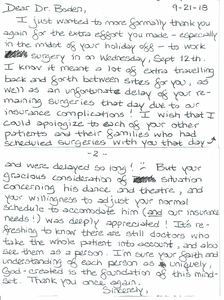 Dear Dr. Boden, 9-21-18
I just wanted to more formally thank you
again for the extra effort you made - especially
in the midst of your holiday off - to work
surgery in on Wednesday, Sept 12th.
I know it meant a lot of extra travelling
back and forth between sites for you, as
well as an unfortunate delay of your re-
maining surgeries that day due to our
insurance complications! I wish that I
could apologize to each of your other
patients and their families who had
scheduled surgeries with you that day
- 2 -
and were delayed so long! But your
gracious consideration of situation
concerning his dance and theatre, and
your willingness to adjust your normal
schedule to accomodate him (and our insurance
needs!) was deeply appreciated! It's re-
freshing to know there are still doctors who
take the whole patient into account, and also
see them as a person. I'm sure your faith and
understanding of each person as uniquely,
God-created is the foundation of this mind-
set. Thank you once again.
Sincerely,